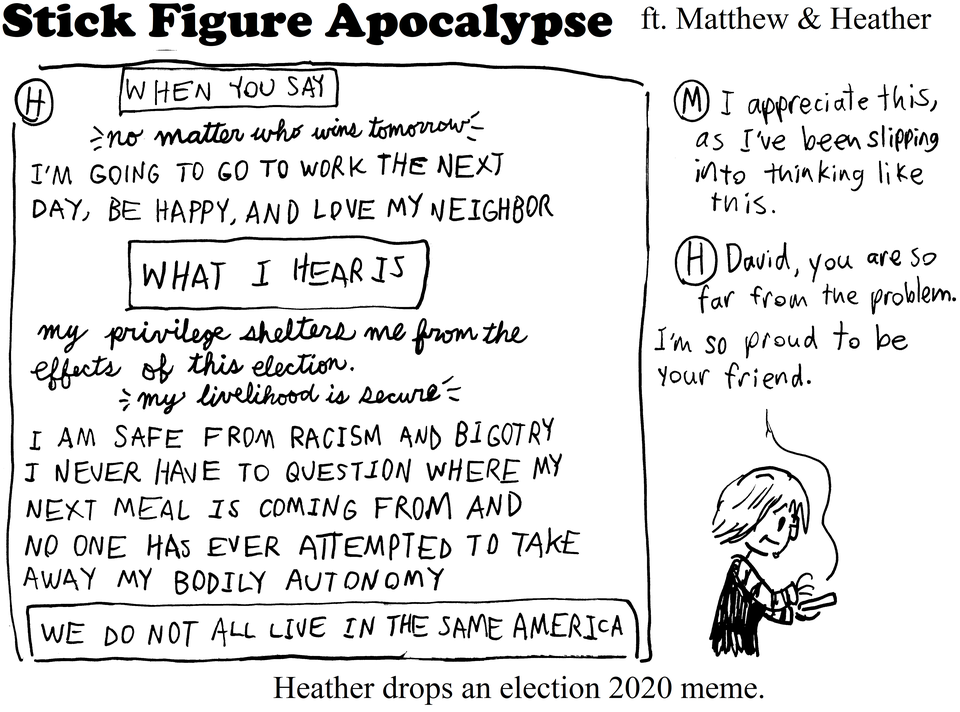 Stick Figure Apocalypse ft. Matthew & Heather
H
WHEN YOU SAY
no matter who wins tomorrow
I'M GOING TO GO TO WORK THE NEXT
DAY, BE HAPPY, AND LOVE MY NEIGHBOR
WHAT I HEAR IS
my privilege shelters me from the
effects of this election.
my livelihood is secure
I AM SAFE FROM RACISM AND BIGOTRY
I NEVER HAVE TO QUESTION WHERE MY
NEXT MEAL IS COMING FROM AND
NO ONE HAS EVER ATTEMPTED TO TAKE
AWAY MY BODILY AUTONOMY
WE DO NOT ALL LIVE IN THE SAME AMERICA
M I appreciate this,
as I've been slipping
into thinking like
this.
H David, you are so
far from the problem.
I'm so proud to be
your friend.
Heather drops an election 2020 meme.